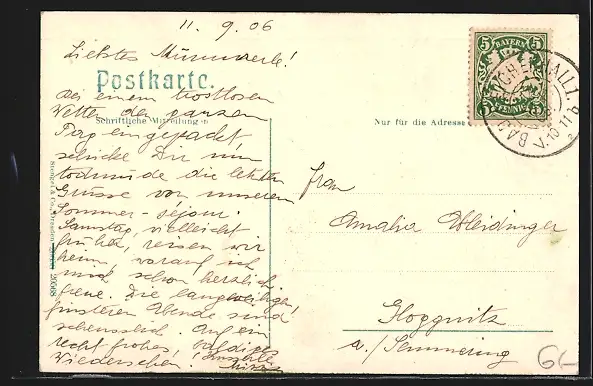 11. 9. 06
Liebstes Mümmerle!
Postkarte.
Bei einem trostlosen
Wetter den ganzen
Schriftliche Mitteilungen
Tag eingepackt
schicke Dir nun
todmüde die letzten
Grüsse von unserem
Sommer-séjour.
Samstag, vielleicht
früher, reisen wir
heim, worauf ich
mich schon herzlich
freue. Die langweiligen
finsteren Abende sind
scheusslich. Auf ein
recht frohes, baldiges
Wiedersehen!
Nur für die Adresse
Frau
Amalia Weidinger
Gloggnitz
a./Semmering
5 BAYERN 5
5 5
BAD REICHENHALL 1.
Stengel & Co., Dresden 29068
6/-